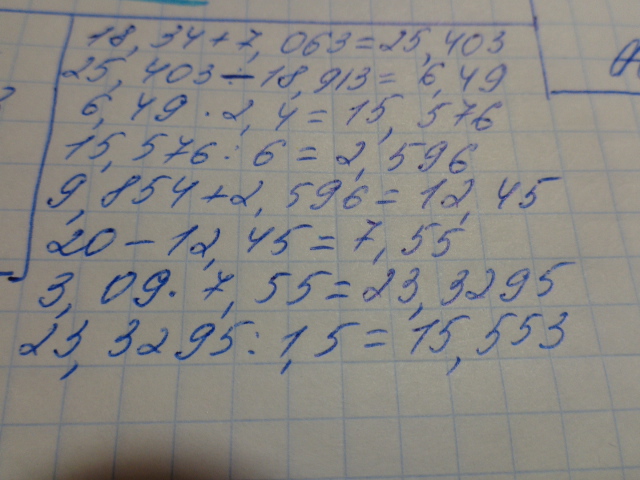 18, 34 + 7, 063 = 25, 403
25, 403 - 18, 913 = 6, 49
6, 49 · 2, 4 = 15, 576
15, 576 : 6 = 2, 596
9, 854 + 2, 596 = 12, 45
20 - 12, 45 = 7, 55
3, 09 · 7, 55 = 23, 3295
23, 3295 : 1, 5 = 15, 553